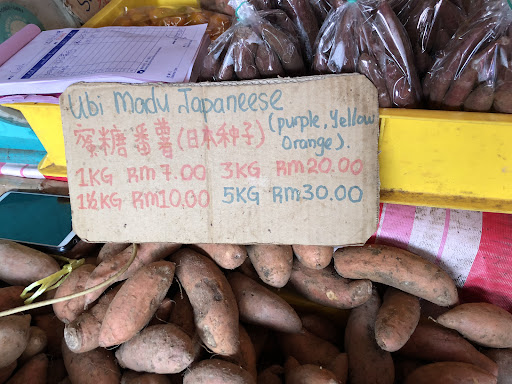 Ubi Madu Japaneese
蜜糖番薯(日本种子)
(purple, Yellow
Orange).
1KG RM 7.00 3KG RM 20.00
1½KG RM 10.00 5KG RM 30.00